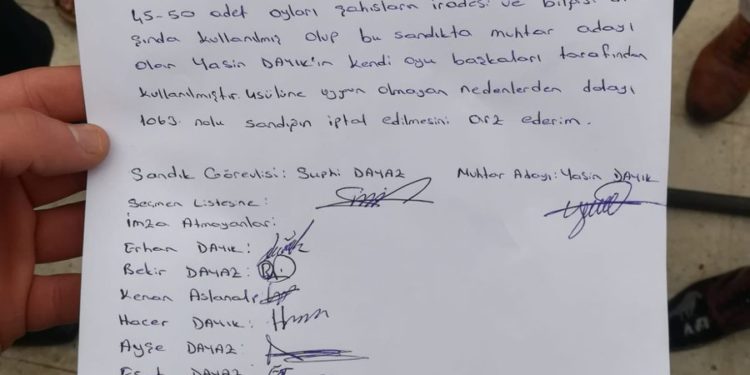 45-50 adet oyları şahısların iradesi ve bilgisi dı
şında kullanılmış olup bu sandıkta muhtar adayı
olan Yasin DAYIK'ın kendi oyu başkaları tarafından
kullanılmıştır. usülüne uygun olmayan nedenlerden dolayı
1063. nolu sandığın iptal edilmesini arz ederim.
Sandık Görevlisi: Suphi DAYAZ Muhtar Adayı: Yasin DAYIK
Seçmen Listesine:
İmza Atmayanlar:
Erhan DAYIK:
Bekir DAYAZ:
Kenan
Hacer DAYIK:
Ayşe DAYAZ:
DAYAZ